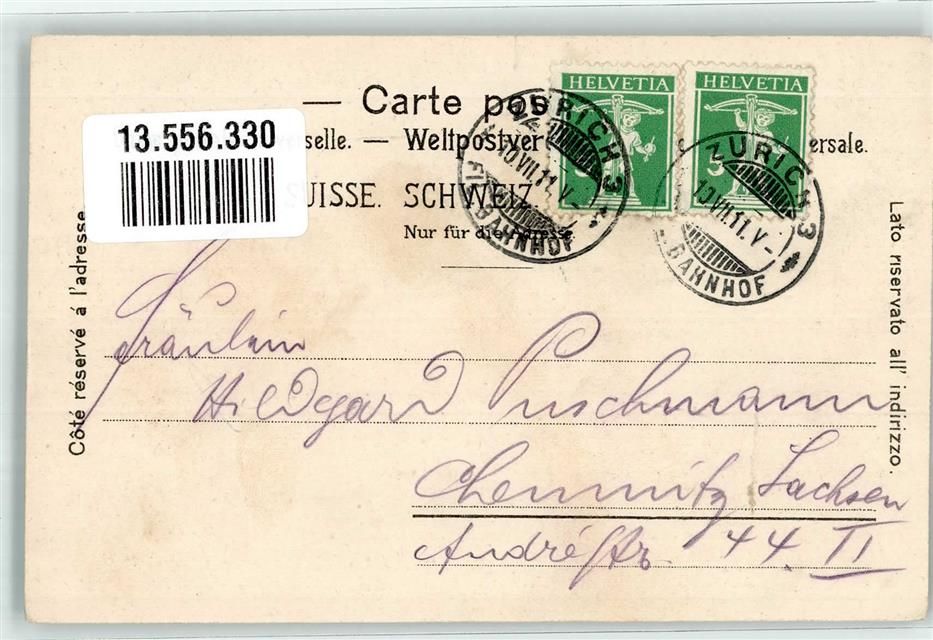 — Carte pos
13.556.330
rselle. — Weltpostver ersale.
SUISSE. SCHWEIZ.
Nur für die Adresse
HELVETIA
5
HELVETIA
5
ZÜRICH 3
10.VII.11.V-
BAHNHOF
ZÜRICH 3
10.VII.11.V-
BAHNHOF
Côté réservé á l'adresse
Lato riservato all' indirizzo.
Fräulein
Hildgard Puschmann
Chemnitz Sachsen
Andréstr. 44. II